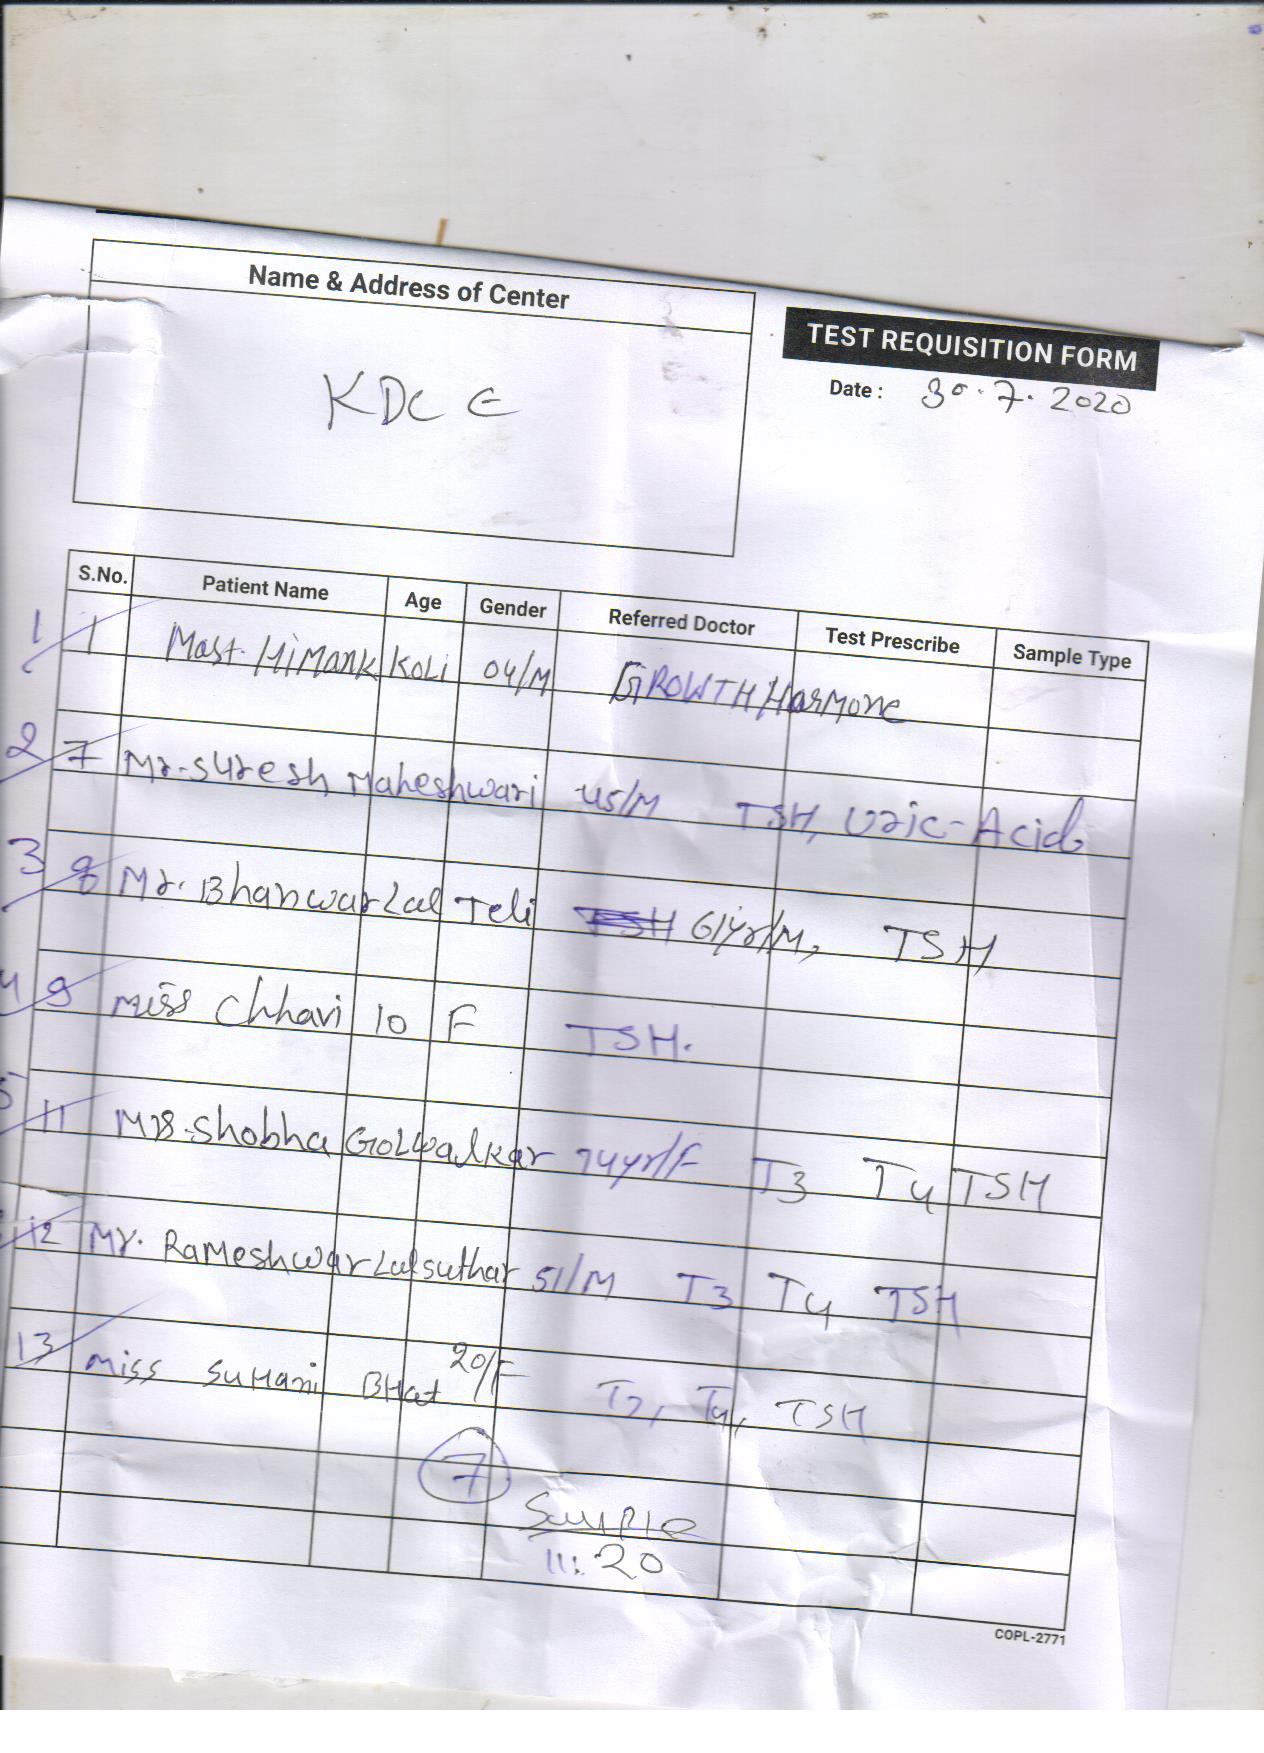 Name & Address of Center
KDC C
TEST REQUISITION FORM
Date : 30.7.2020
S.No. Patient Name Age Gender Referred Doctor Test Prescribe Sample Type
1 1 Mast. HiMANK KOLI 04/M GROWTH Harmone
2 7 Mr. Suresh Maheshwari 45/M TSH, Uric-Acid
3 8 Mr. Bhanwar Lal Teli 61yr/M, TSH
4 9 Miss Chhavi 10 F TSH.
5 11 Mrs. Shobha Golwalkar 74yr/F T3 T4 TSH
12 Mr. Rameshwar Lal suthar 51/M T3 T4 TSH
13 Miss SuHani BHat 20/F T3, T4, TSH
7
Sample
11:20
COPL-2771